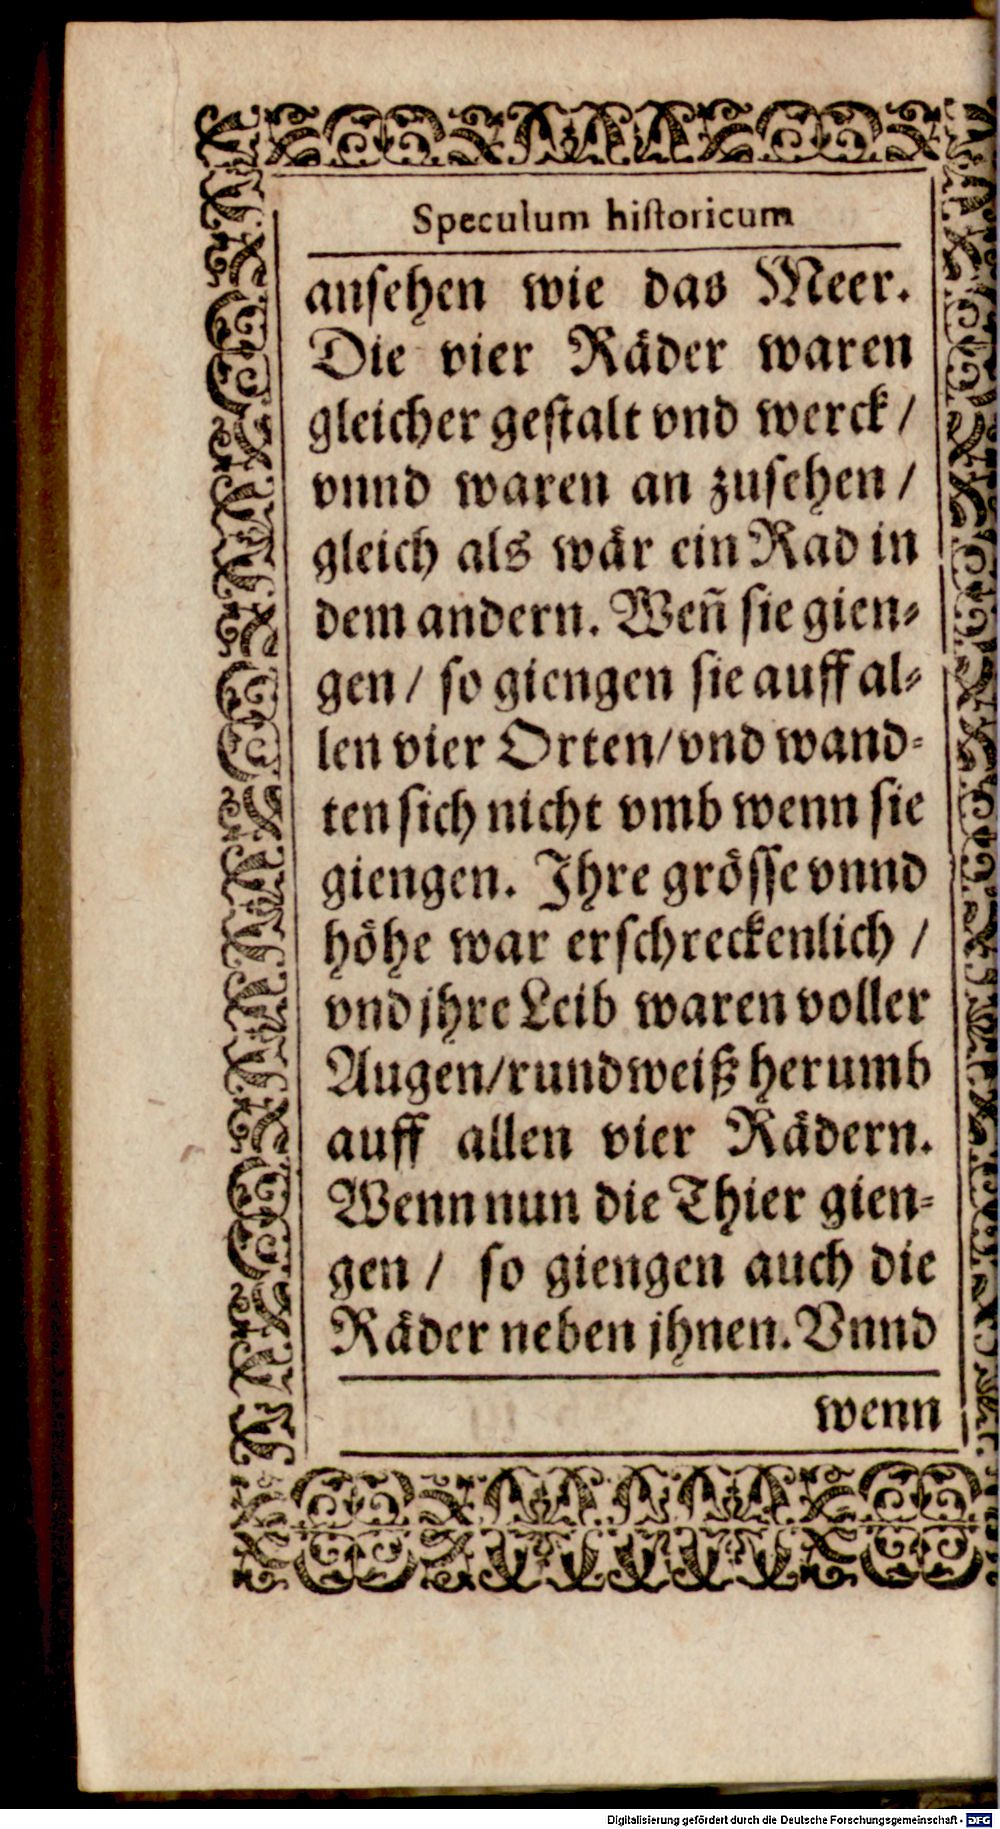 Speculum hiſtoricum
anſehen wie das Meer.
Die vier Räder waren
gleicher geſtalt vnd werck /
vnnd waren an zuſehen /
gleich als wär ein Rad in
dem andern. Weñ ſie gien⸗
gen / ſo giengen ſie auff al⸗
len vier Orten/vnd wand⸗
ten ſich nicht vmb wenn ſie
giengen. Ihre gröſſe vnnd
höhe war erſchreckenlich /
vnd jhre Leib waren voller
Augen/rundweiß herumb
auff allen vier Rädern.
Wenn nun die Thier gien⸗
gen / ſo giengen auch die
Räder neben jhnen. Vnnd
wenn
Digitalisierung gefördert durch die Deutsche Forschungsgemeinschaft - DFG